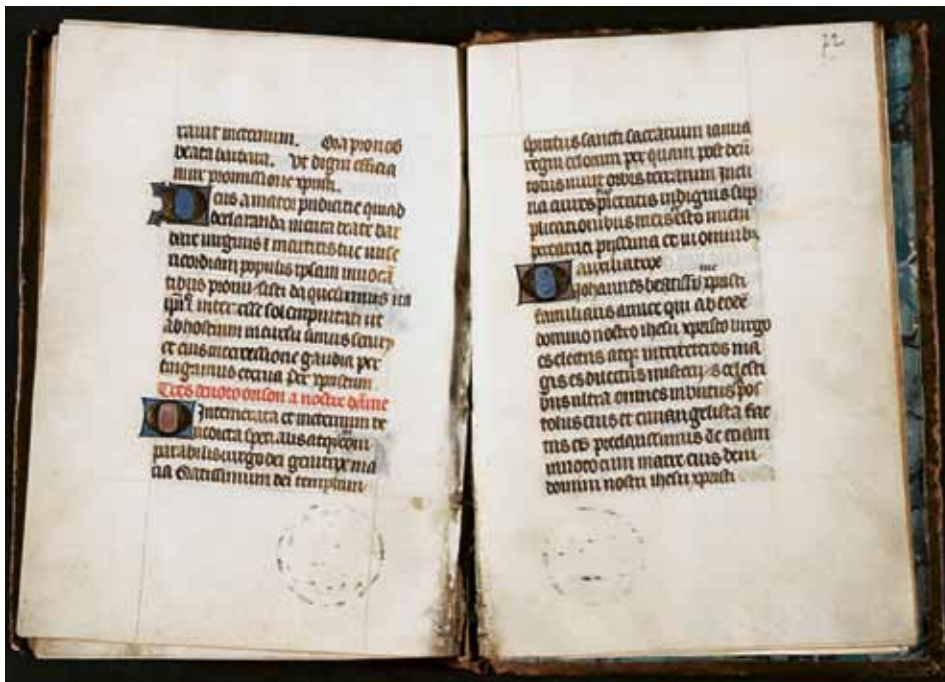 rauit meternum. Ora pro nob
beata barbara. Vt digni efficia
mur promissione xpisti.
Deus amator pudicitie qui ad
declaranda merita beate bar
bare uirginis et martiris tue mise
ricordiam populis ipsam inuocā
tibus pronu sisti da quesumus ita
inter esse sol empnitati ut
ab hostium incursu simus
et eius intercessione gaudia per
tingamus eterna Per xpistum
Tres deuote orison a nostre dame
O Intemerata et meternum be
nedicta atqz
parabilis uirgo dei genitrix ma
ria Gratissimum dei templum
72
spiritus sancti sacrarium ianua
regni celorum per quam post deū
totus uiuit orbis terrarum Incli
na aures pietatis indignis sup
plicationibus meis esto michi
peccatori pijssima et in omnibz
auxiliatrix
O Johannes xpisti
familiaris amice qui ab eodē
domino nostro ihesu xpisto uirgo
es electus atqz inter ceteros ma
gis es dilectus misterijs celesti
bus ultra omnes imbutus
tolus eius et euuangelista fac
tus es preclarissimus Te etiam
inuoco cum matre eius dem
domini nostri ihesu xpisti